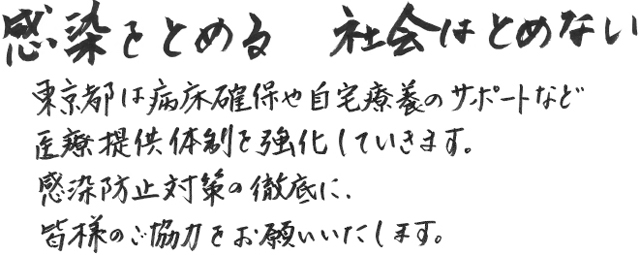 感染をとめる　社会はとめない
東京都は病床確保や自宅療養のサポートなど
医療提供体制を強化していきます。
感染防止対策の徹底に、
皆様のご協力をお願いいたします。